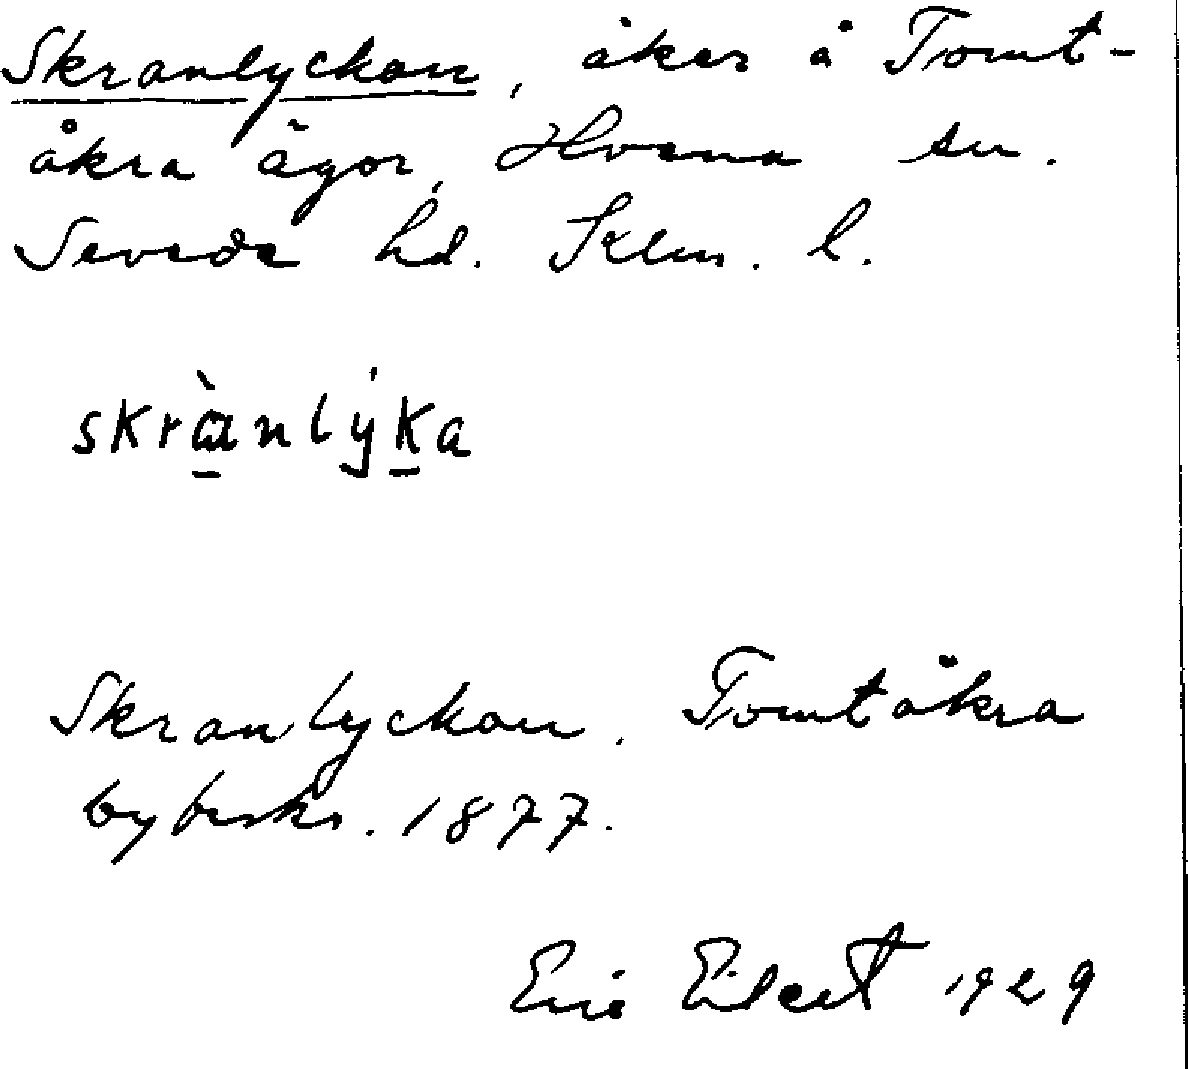 Skranlyckan, åker å Tomt-
åkra ägor, Hvena sn.
Sevede hd. Klm. l.
skrànlýka
Skranlyckan. Tomtåkra
bybeskr. 1877.
Eric Elcert 1929